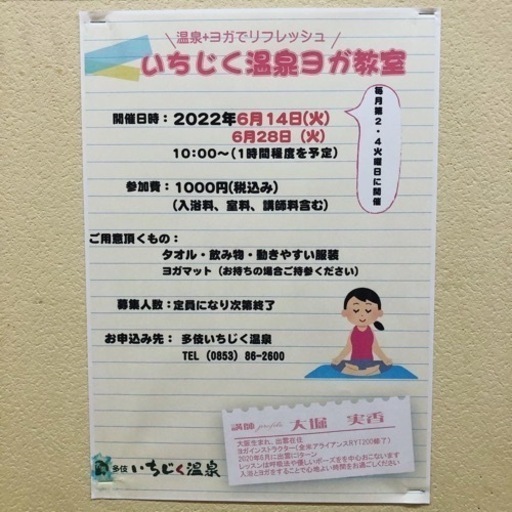 温泉+ヨガでリフレッシュ
いちじく温泉ヨガ教室
毎月第2・4火曜日に開催
開催日時： 2022年6月14日(火)
6月28日（火）
10:00～(1時間程度を予定)
参加費：1000円(税込み)
(入浴料、室料、講師料含む)
ご用意頂くもの：
タオル・飲み物・動きやすい服装
ヨガマット（お持ちの場合ご持参ください）
募集人数：定員になり次第終了
お申込み先： 多伎いちじく温泉
TEL（0853）86-2600
講師 profile 大堀 実香
大阪生まれ、出雲在住
ヨガインストラクター(全米アライアンスRYT200修了)
2020年6月に出雲にIターン
レッスンは呼吸法や優しいポーズを中心におこないます
入浴とヨガをすることで心地よい時間をお過ごしください
多伎 いちじく温泉